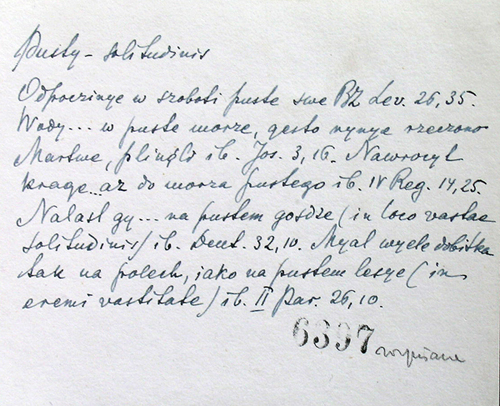 Pusty – solitudinis
Odpoczinye w szoboti puste swe BZ Lev. 26, 35.
Wody... w puste morze, gesto nynye rzeczono
Martwe, plinøli ib. Jos. 3, 16. Nawrocyl
krage... az do morza pustego ib. IV Reg. 14, 25.
Nalazl gy... na pustem gosdze (in loco vastae
solitudinis) ib. Deut. 32, 10. Myal wyele dobitka
tak na polech, jako na pustem lesye (in
eremi vastitate) ib. II Par. 26, 10.
6397 wypisane